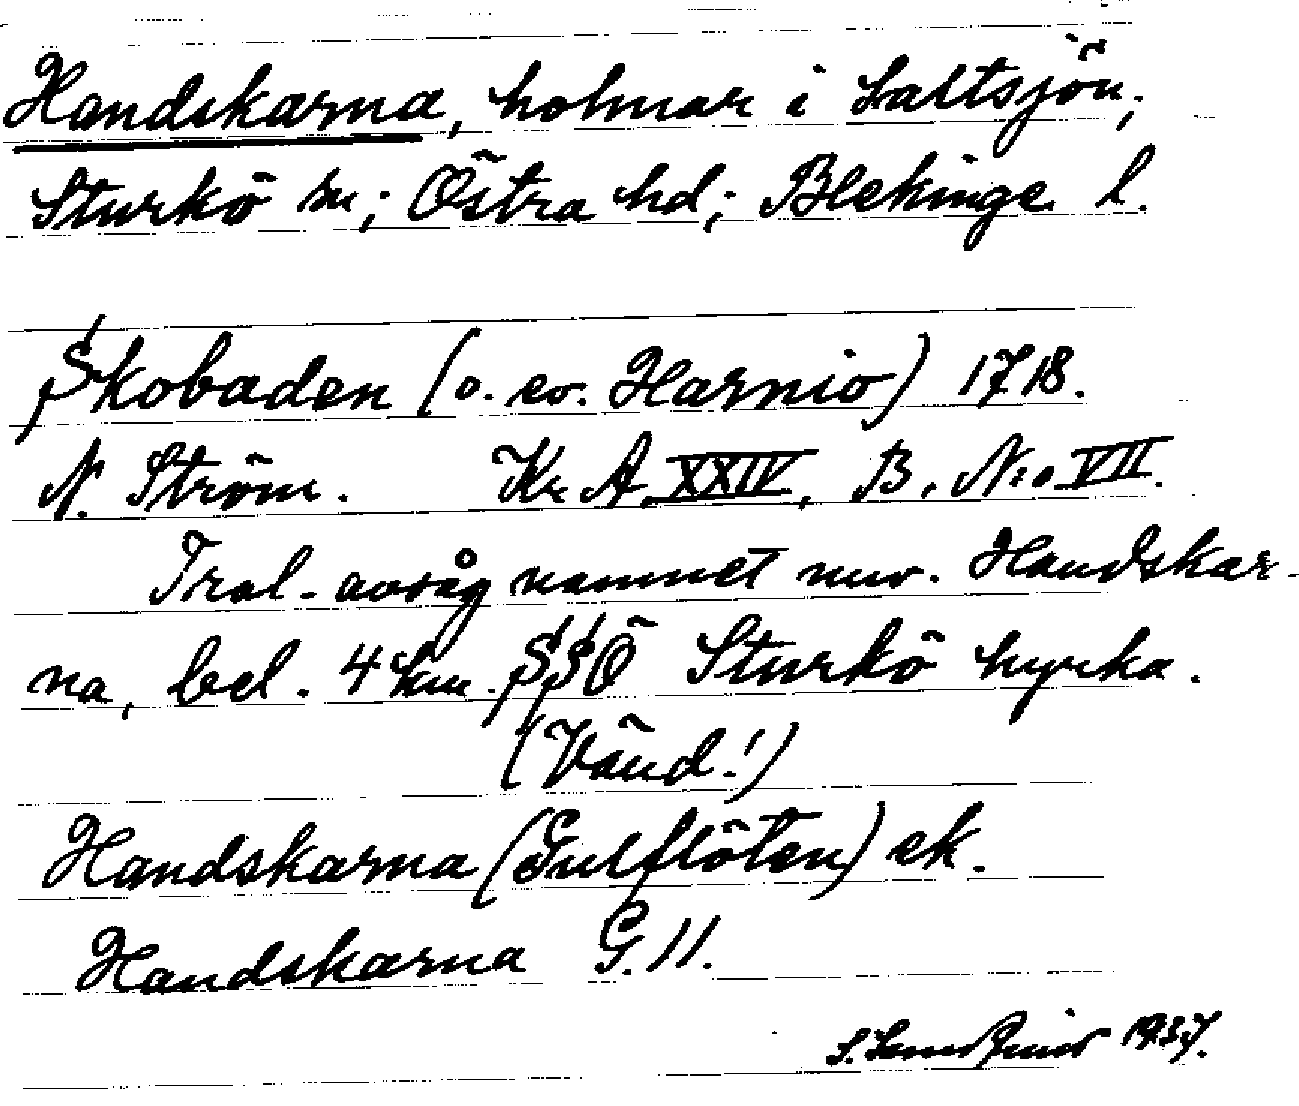 Handskarna, holmar i Saltsjön;
Sturkö sn; Östra hd; Blekinge l.
Skobaden (o. ev. Harnio) 1718.
N. Ström. Kr. A. XXIV, B, N:o VII.
Trol. avsåg namnet nuv. Handskar-
na, bel. 4 km. SSÖ Sturkö kyrka.
(Vänd!)
Handskarna (Gulflöten) ek.
Handskarna G. 11.
S. 1937.